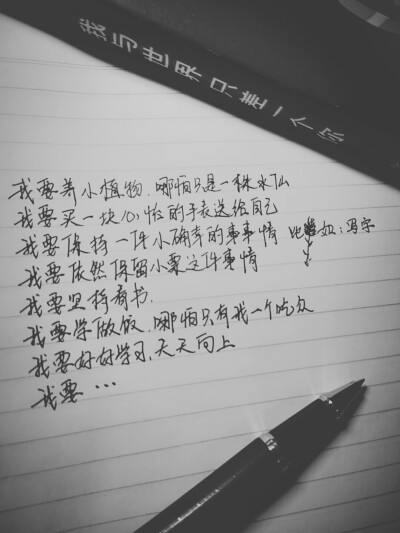 我与世界只差一个你
我要养小植物,哪怕只是一株水仙
我要买一块心怡的手表送给自己
我要保持一件小确幸的事事情 比如:写字
我要依然保留小栗这件事情
我要坚持看书.
我要学做饭,哪怕只有我一个吃众
我要好好学习,天天向上
我要 …